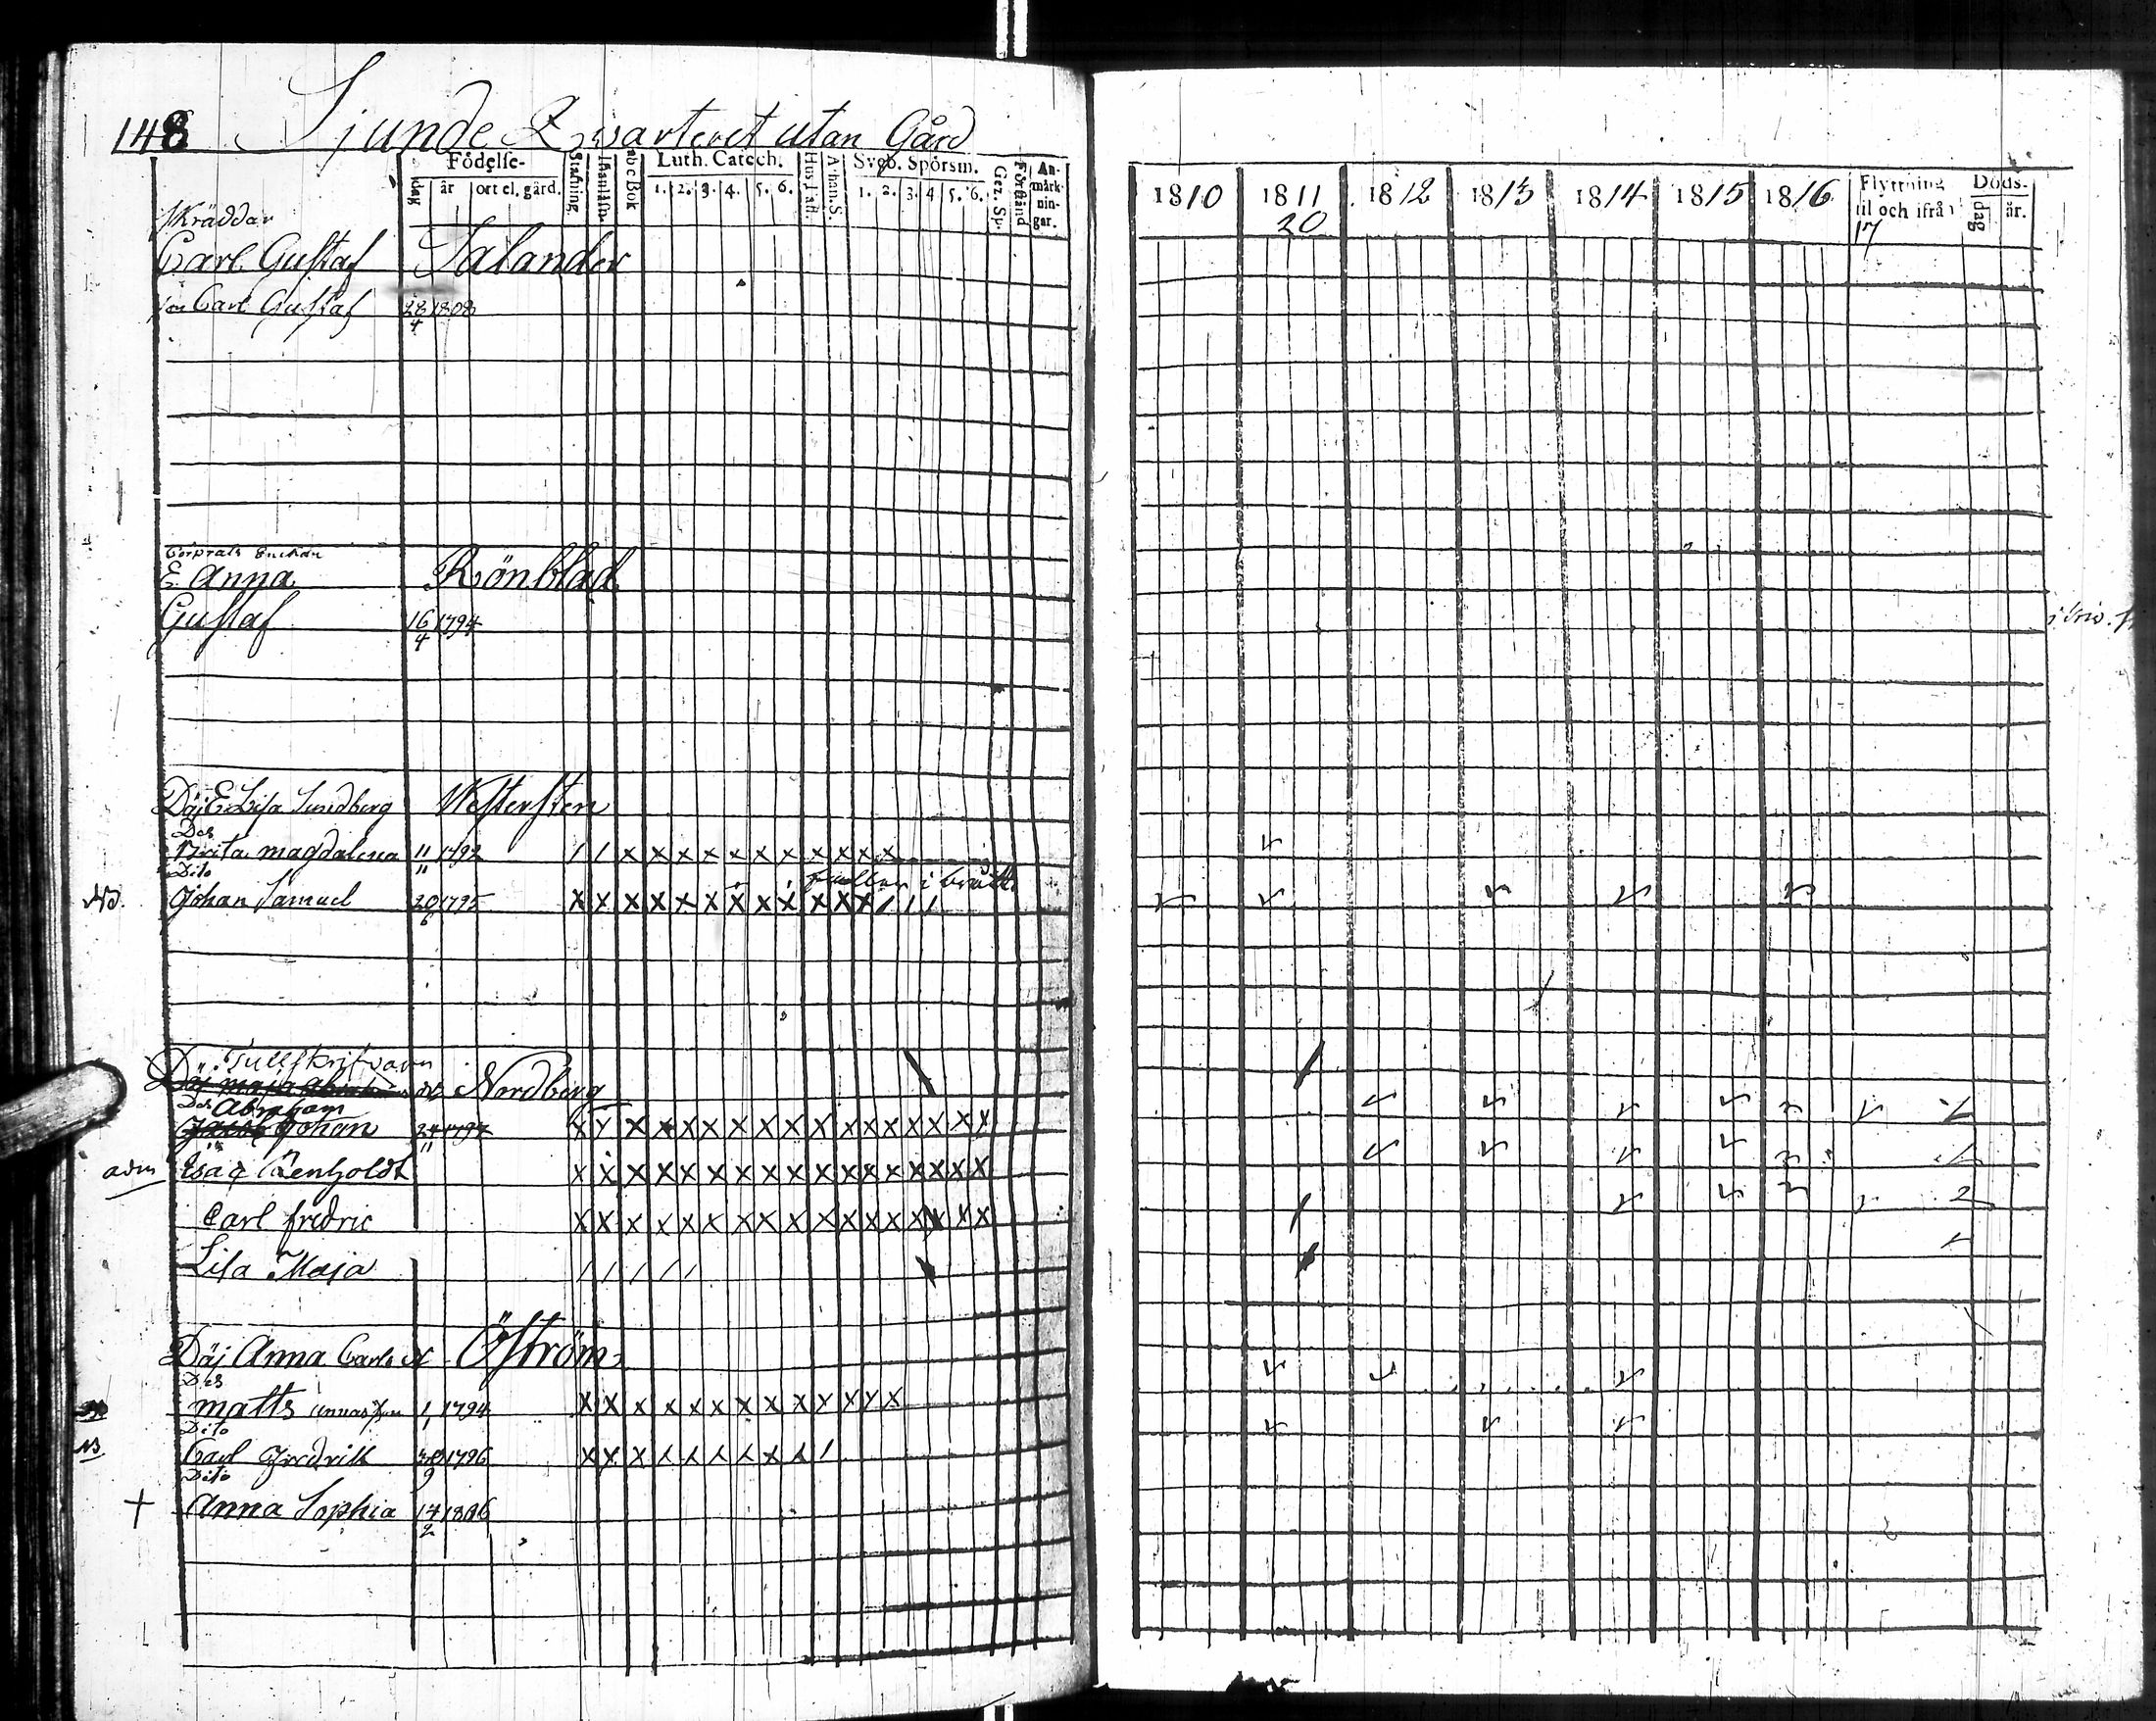 148 Sjunde Qwarteret utan Gård
Födelse- Stafning Innanläsn. abc Bok Luth. Catech. Hus Tafl. Athan. S. Sveb. Spörsm. Gez. Sp. Förstånd An-märk-nin-gar.
dag år ort el. gård. 1. 2. 3. 4. 5. 6. 1. 2. 3. 4 5. 6.
1810 1811 1812 1813 1814 1815 1816 Flyttning til och ifrån Döds- dag år.
20 17
Skräddar
Carl Gustaf Salander
son Carl Gustaf 28/4 1808
Corprals Enckan
E Anna Rönblad
Gustaf 16/4 1794
Däj E Lisa Sundberg Westersten
Des
Brita Magdalena 11/11 1792 / / x x x x x x x x x x x
Dito
i brädt
NB. Johan Samuel 20/6 1795 x x x x x x x x x x x x / / /
Tullskrifvarn
Däj Maja Nordberg
Des Abraham
Jacob Johan 24/11 1797 x x x x x x x x x x x x x x x x x
adm Isac Renholdt x x x x x x x x x x x x x x x x x
Carl fredric x x x x x x x x x x x x x x x x x
Lisa Maja / / / / /
Däj Anna Carls Öström
Des
Matts annas son 1/1 1794 x x x x x x x x x x x x x
Dito
NB Carl Fredrik 30/9 1796
Dito
+ Anna Sophia 14/2 1806